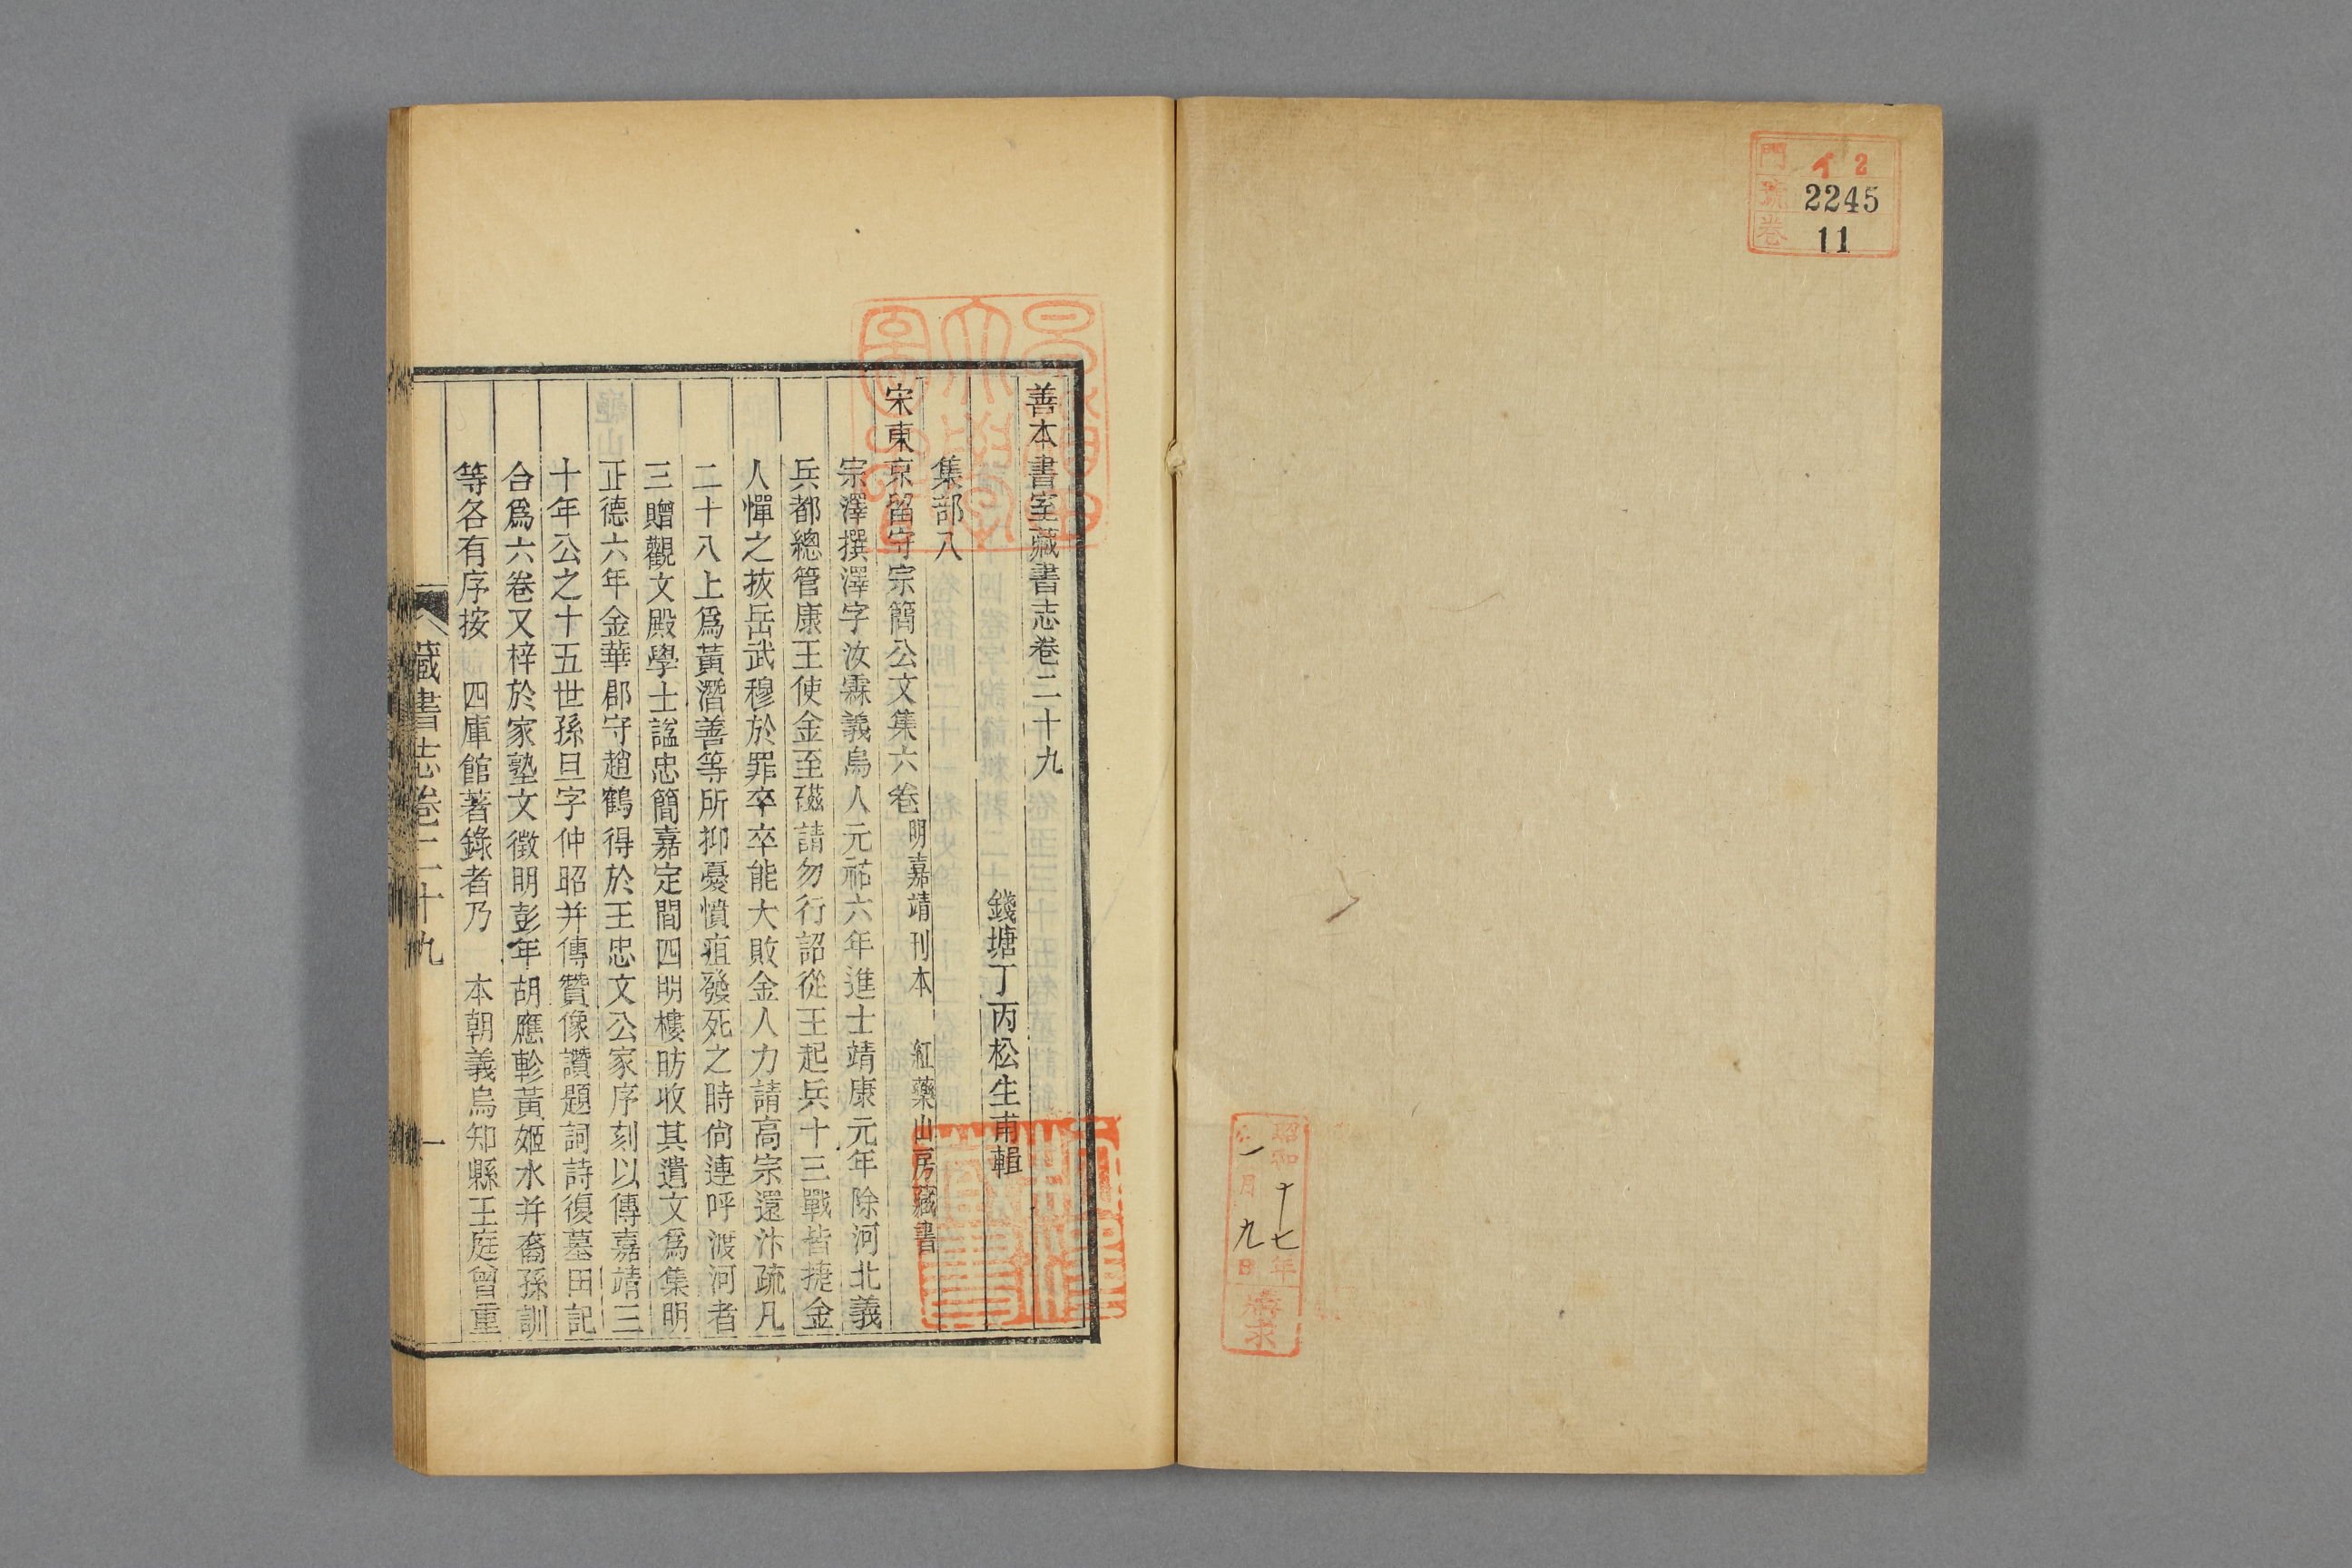 門 イ2
號 2245
卷 11
昭和十七年
一月九日
購求
善本書室藏書志卷二十九
錢塘丁丙松生甫輯
集部八
宋東京留守宗簡公文集六卷 明嘉靖刊本 紅藥山房藏書
宗澤撰澤字汝霖義烏人元祐六年進士靖康元年除河北義
兵都總管康王使金至磁請勿行詔從王起兵十三戰皆捷金
人憚之拔岳武穆於罪卒卒能大敗金人力請高宗還汴疏凡
二十八上爲黃潛善等所抑憂憤疽發死之時尙連呼渡河者
三贈觀文殿學士諡忠簡嘉定間四明樓昉收其遺文爲集明
正德六年金華郡守趙鶴得於王忠文公家序刻以傳嘉靖三
十年公之十五世孫旦字仲昭并傳贊像讚題詞詩復墓田記
合爲六卷又梓於家塾文徵明彭年胡應軫黃姬水并裔孫訓
等各有序按 四庫館著錄者乃 本朝義烏知縣王庭曾重
藏書志卷二十九 一